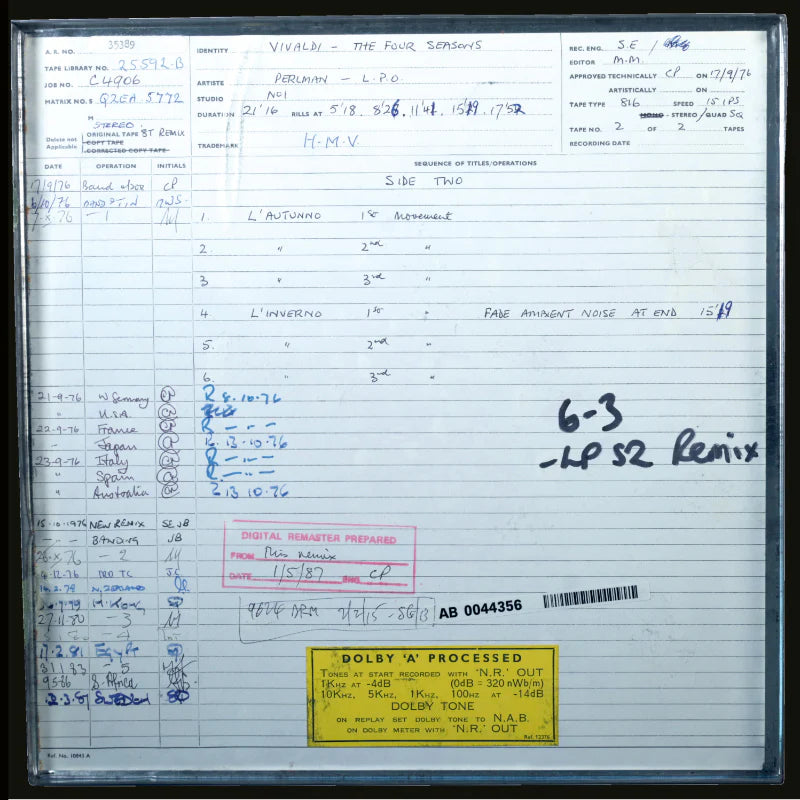 A.R. NO. 35389
TAPE LIBRARY NO. 25592-B
JOB NO. C4906
MATRIX NO.S Q2EA 5772
M
STEREO.
Delete not Applicable
ORIGINAL TAPE 8T REMIX
COPY TAPE
CORRECTED COPY TAPE
IDENTITY VIVALDI - THE FOUR SEASONS
ARTISTE PERLMAN - L.P.O.
STUDIO NO1
DURATION 21'16 RILLS AT 5'18, 8'26, 11'41, 15'19, 17'52
TRADEMARK H.M.V.
REC. ENG. S.E /
EDITOR M.M.
APPROVED TECHNICALLY CP ON 17/9/76
ARTISTICALLY ON
TAPE TYPE 816 SPEED 15 IPS
MONO - STEREO / QUAD SQ
TAPE NO. 2 OF 2 TAPES
RECORDING DATE
DATE OPERATION INITIALS
SEQUENCE OF TITLES/OPERATIONS
SIDE TWO
17/9/76 Band above CP
1. L'AUTUNNO 1st Movement
2. " 2nd "
3 " 3rd "
4. L'INVERNO 1st " FADE AMBIENT NOISE AT END 15'19
5. " 2nd "
6. " 3rd "
21-9-76 W Germany R 8.10.76
" U.S.A.
22-9-76 France R - " -
" Japan R 13.10.76
23-9-76 Italy R - " -
" Spain R - " -
" Australia R 13 10.76
6-3
-LP S2 Remix
15.10.1976 NEW REMIX SE JB
- " - BANDING JB
26-X-76 - 2
DIGITAL REMASTER PREPARED
FROM This remix
DATE 1/5/87 ENG. CP
N. ZEALAND
H. Kong
27-11-80 - 3
- 4
17.2.81 Egypt
31.1.83 - 5
S. Africa
Sweden
9624 DRM 2/2/15 - SG/B
AB 0044356
DOLBY 'A' PROCESSED
TONES AT START RECORDED WITH 'N.R.' OUT
1KHZ AT -4dB (0dB = 320 nWb/m)
10KHZ, 5KHZ, 1KHZ, 100HZ AT -14dB
DOLBY TONE
ON REPLAY SET DOLBY TONE TO N.A.B.
ON DOLBY METER WITH 'N.R.' OUT
Ref. 12376
Ref. No. 10845 A